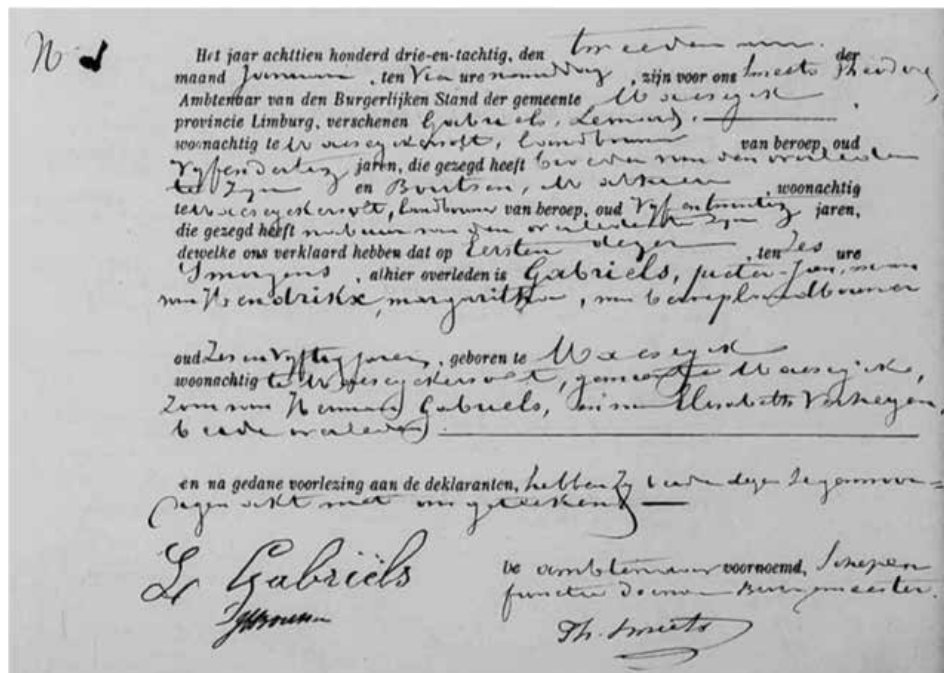 N 1
Het jaar achttien honderd drie-en-tachtig, den tweeden der
maand Januari, ten ure namiddag, zijn voor ons Smeets Theodore,
Ambtenaar van den Burgerlijken Stand der gemeente Maeseyck
provincie Limburg, verschenen Gabriels, Lenard,
woonachtig te Maeseyckervolt, landbouwer van beroep, oud
Vijfendertig jaren, die gezegd heeft broeder van den overleden
te zyn en Boutsen, Mathieu, woonachtig
te Maeseyckervolt, landbouwer van beroep, oud Vijfentwintig jaren,
die gezegd heeft nabuur van den overledene te zyn
dewelke ons verklaard hebben dat op Eersten dezer, ten Zes ure
Smorgens, alhier overleden is Gabriëls, Pieter-Jan, man
van Hendrikx, margaritha, van beroep landbouwer
oud Zes en Vijftig jaren, geboren te Maeseyck
woonachtig te Maeseyckervolt, gemeente Maeseyck,
Zoon van Herman Gabriels, en van Elisabeth Verheyen,
beide overleden
en na gedane voorlezing aan de deklaranten, hebben zy beide deze tegenwoor=
digen akt met ons geteekend
L Gabriëls
De ambtenaar voornoemd, Schepen
functie doende Burgemeester.
Th. Smeets